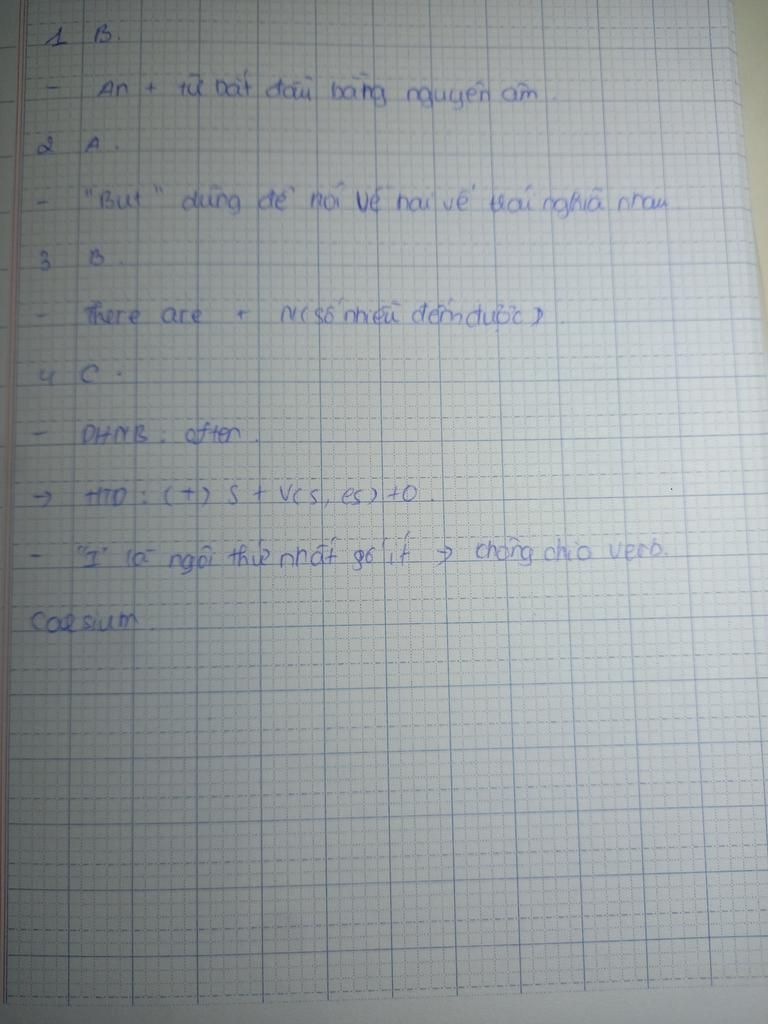 1 B.
- An + từ bắt đầu bằng nguyên âm.
2 A.
- "But" dùng để nói về hai vế trái nghĩa nhau
3 B.
- There are + N(số nhiều đếm được)
4 C.
- DHNB: often.
→ HTD: (+) S + V(s, es) + O.
- "I" là ngôi thứ nhất số ít → chia verb.
Caesium